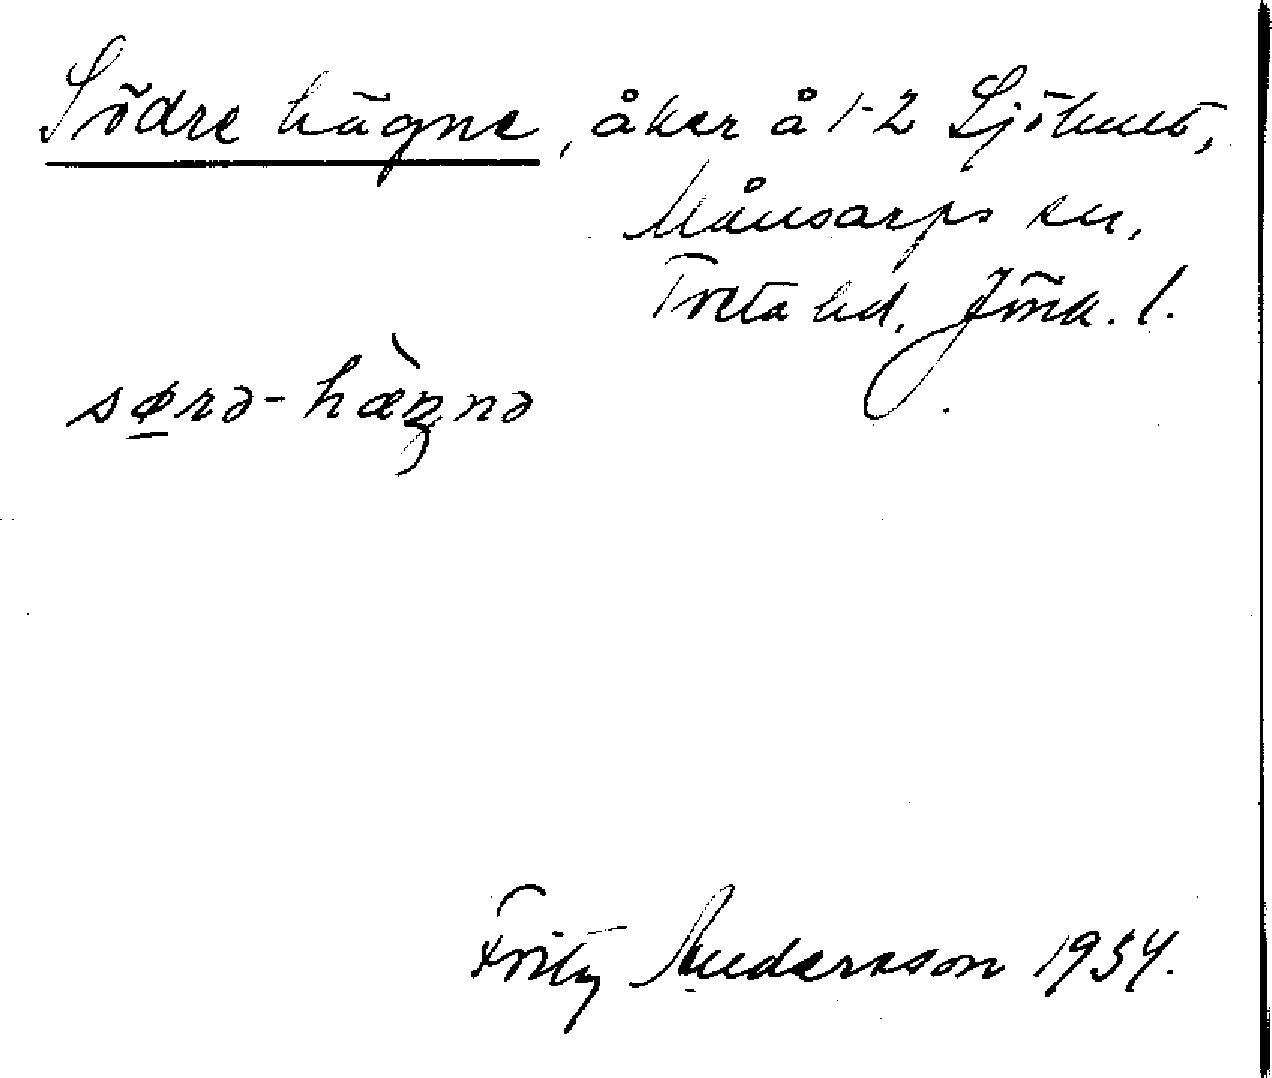 Södre hägne, åker å 1-2 Sjöhult,
Månsarps sn,
Tveta hd. Jönk. l.
sørə-hæ̀gnə
Fritz Andersson 1934.